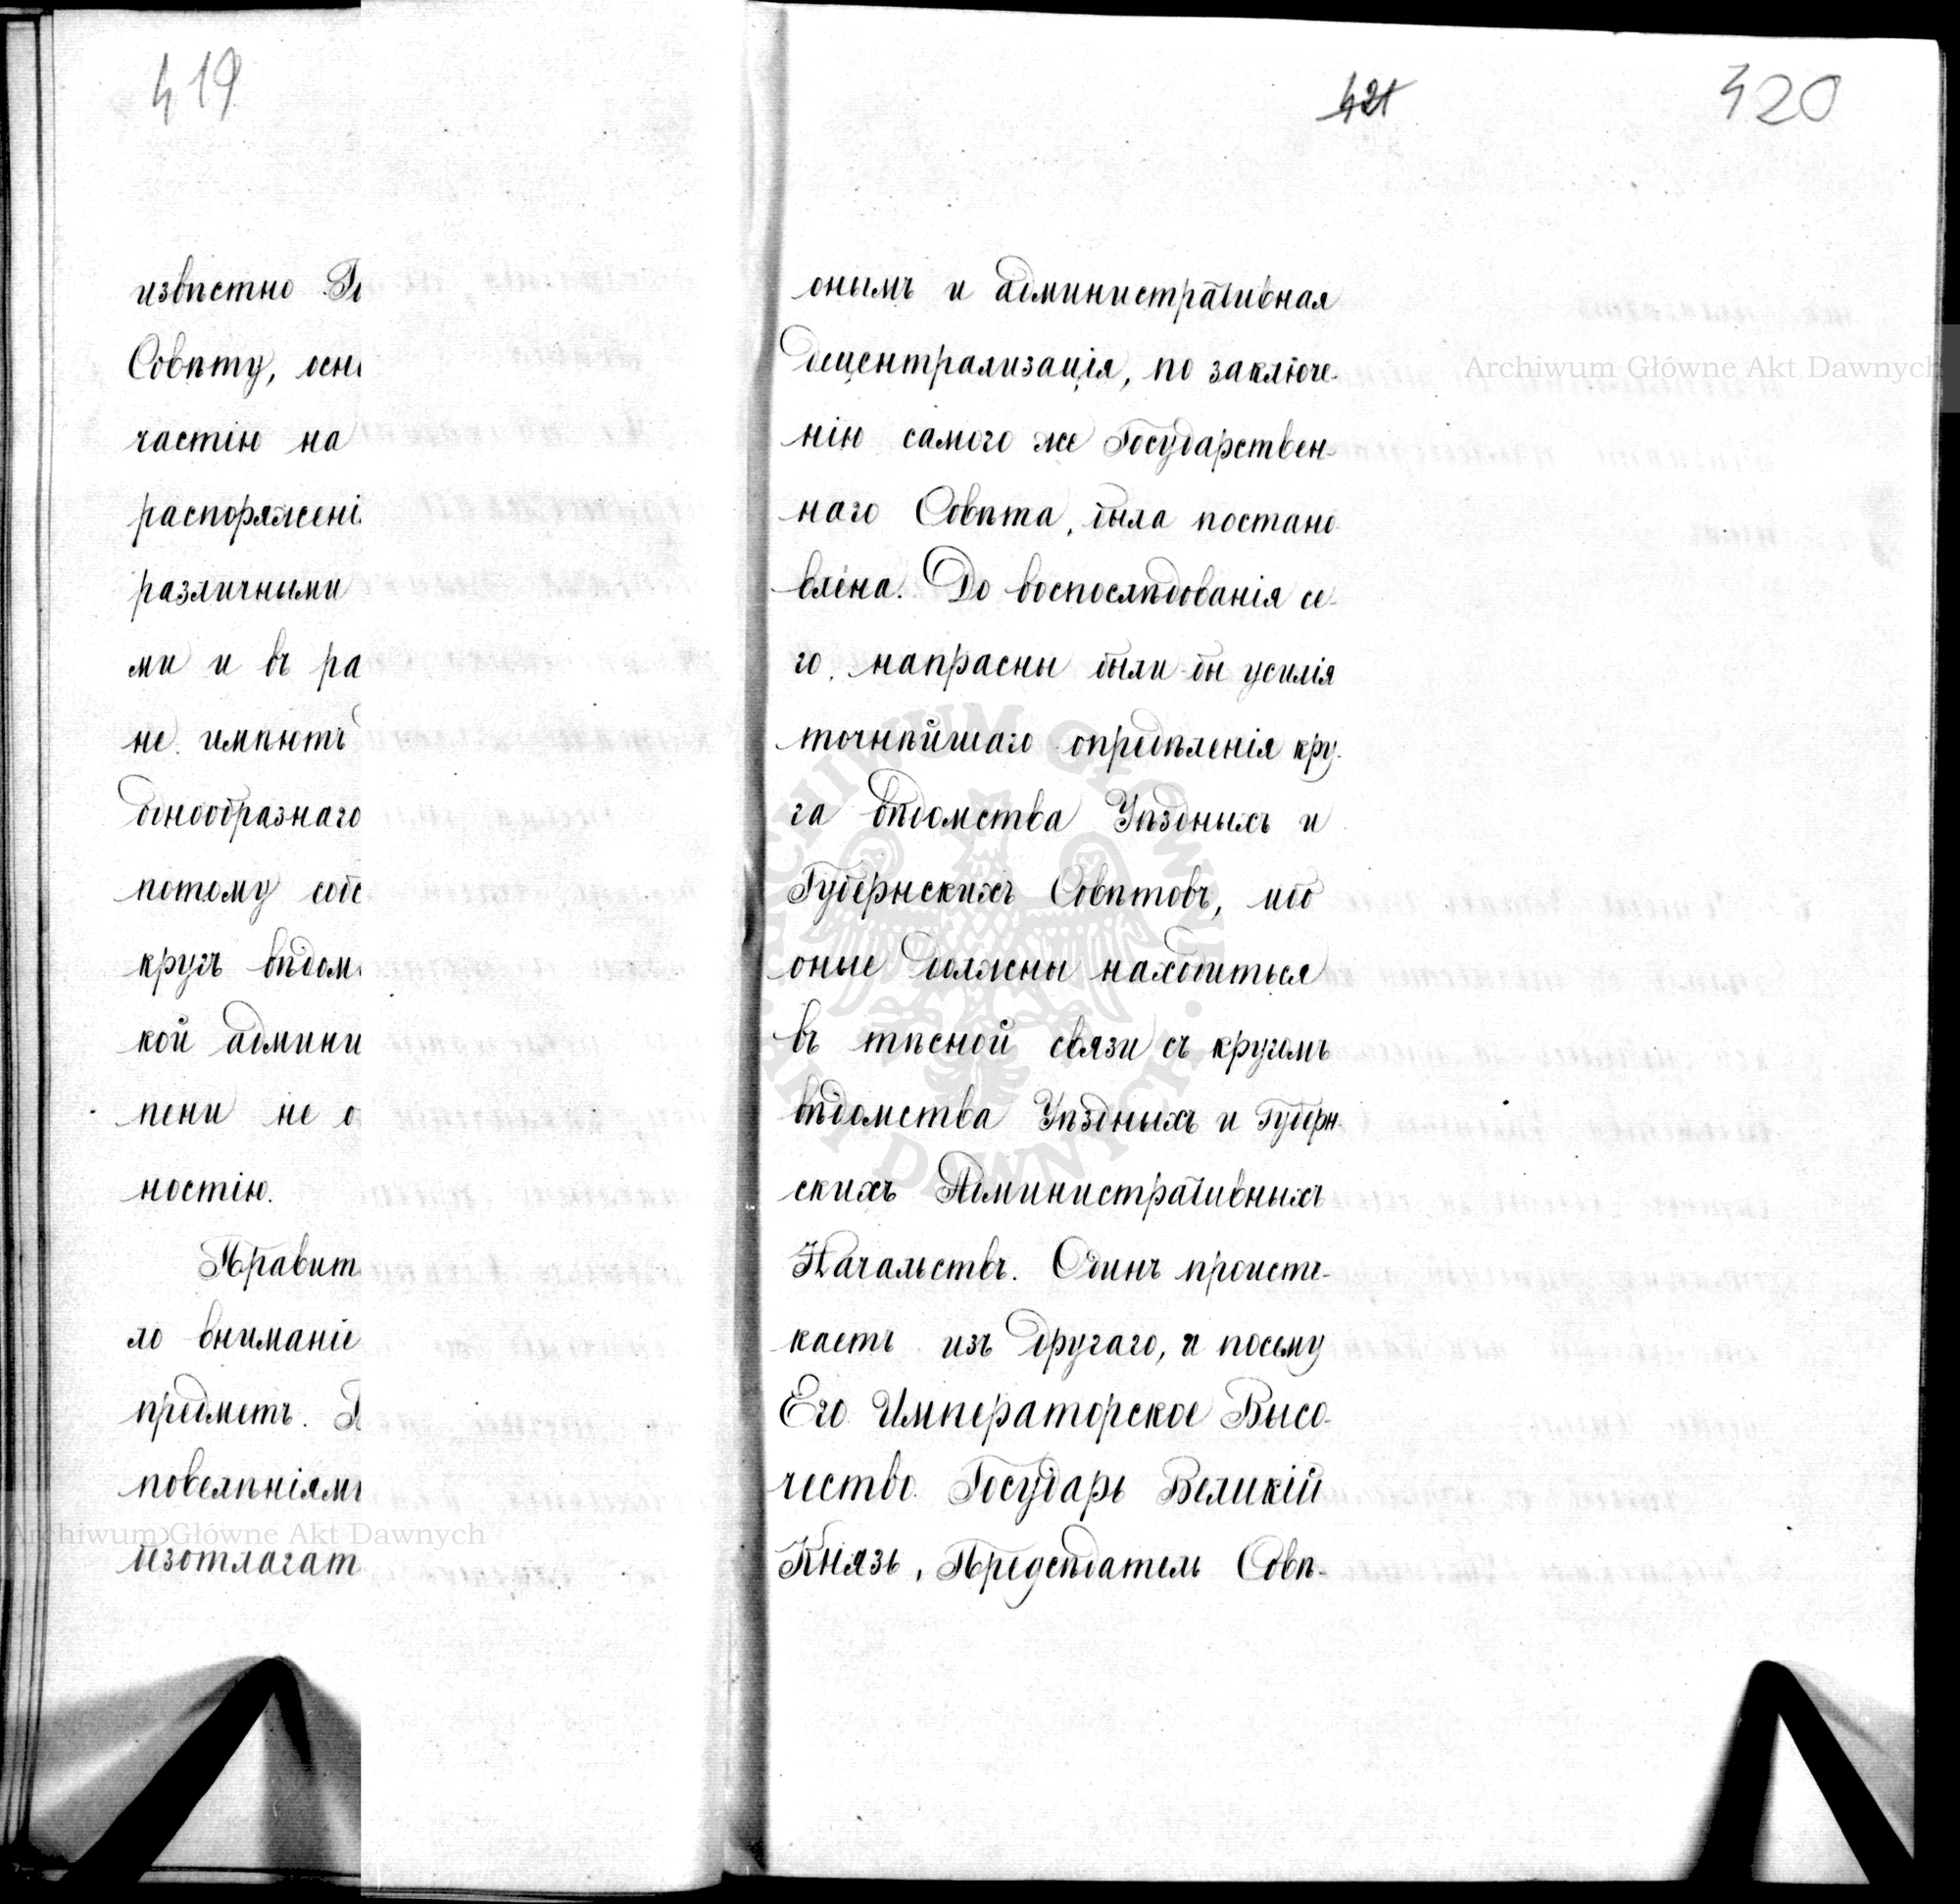 419
извѣстно
Совѣту,
частію на
распоряжені
различными
ми и въ ра
не имѣютъ
днообразнаго
потому
кругъ вѣдом
кой админи
пени не о
ностію.
Правит
ло вниманіе
предметъ.
повелѣніями
безотлагат
421
420
онымъ и административная
децентрализація, по заключе-
нію самого же Государствен-
наго Совѣта, была постано
влена. До воспослѣдованія се-
го, напрасны были-бы усилія
точнѣйшаго опредѣленія кру-
га вѣдомства Уѣздныхъ и
Губернскихъ Совѣтовъ, ибо
оные должны находиться
въ тѣсной связи съ кругомъ
вѣдомства Уѣздныхъ и Губерн-
скихъ Административныхъ
Начальствъ. Одинъ происте-
каетъ изъ другаго, и посему
Его Императорское Высо-
чество Государь Великій
Князь, Предсѣдатель Совѣ-
Archiwum Główne Akt Dawnych
Archiwum Główne Akt Dawnych
ARCHIWUM GŁÓWNE AKT DAWNYCH